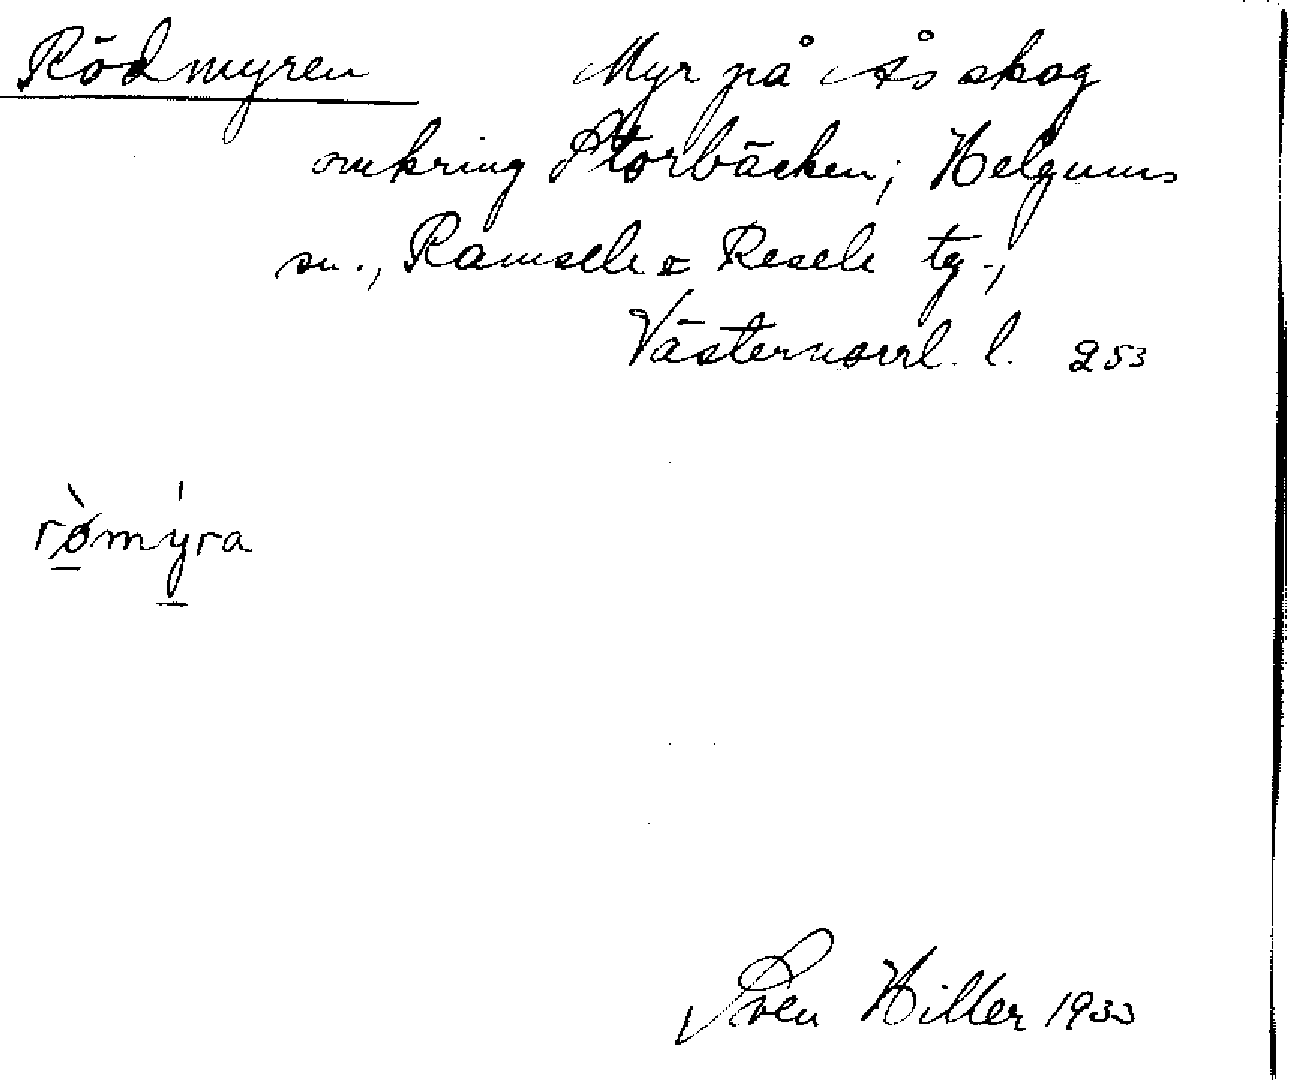 Rödmyren Myr på Ås skog
omkring Storbäcken; Helgums
sn., Ramsele o Resele tg.,
Västernorrl. l. 253
rø̀mýra
Sven Hiller 1933